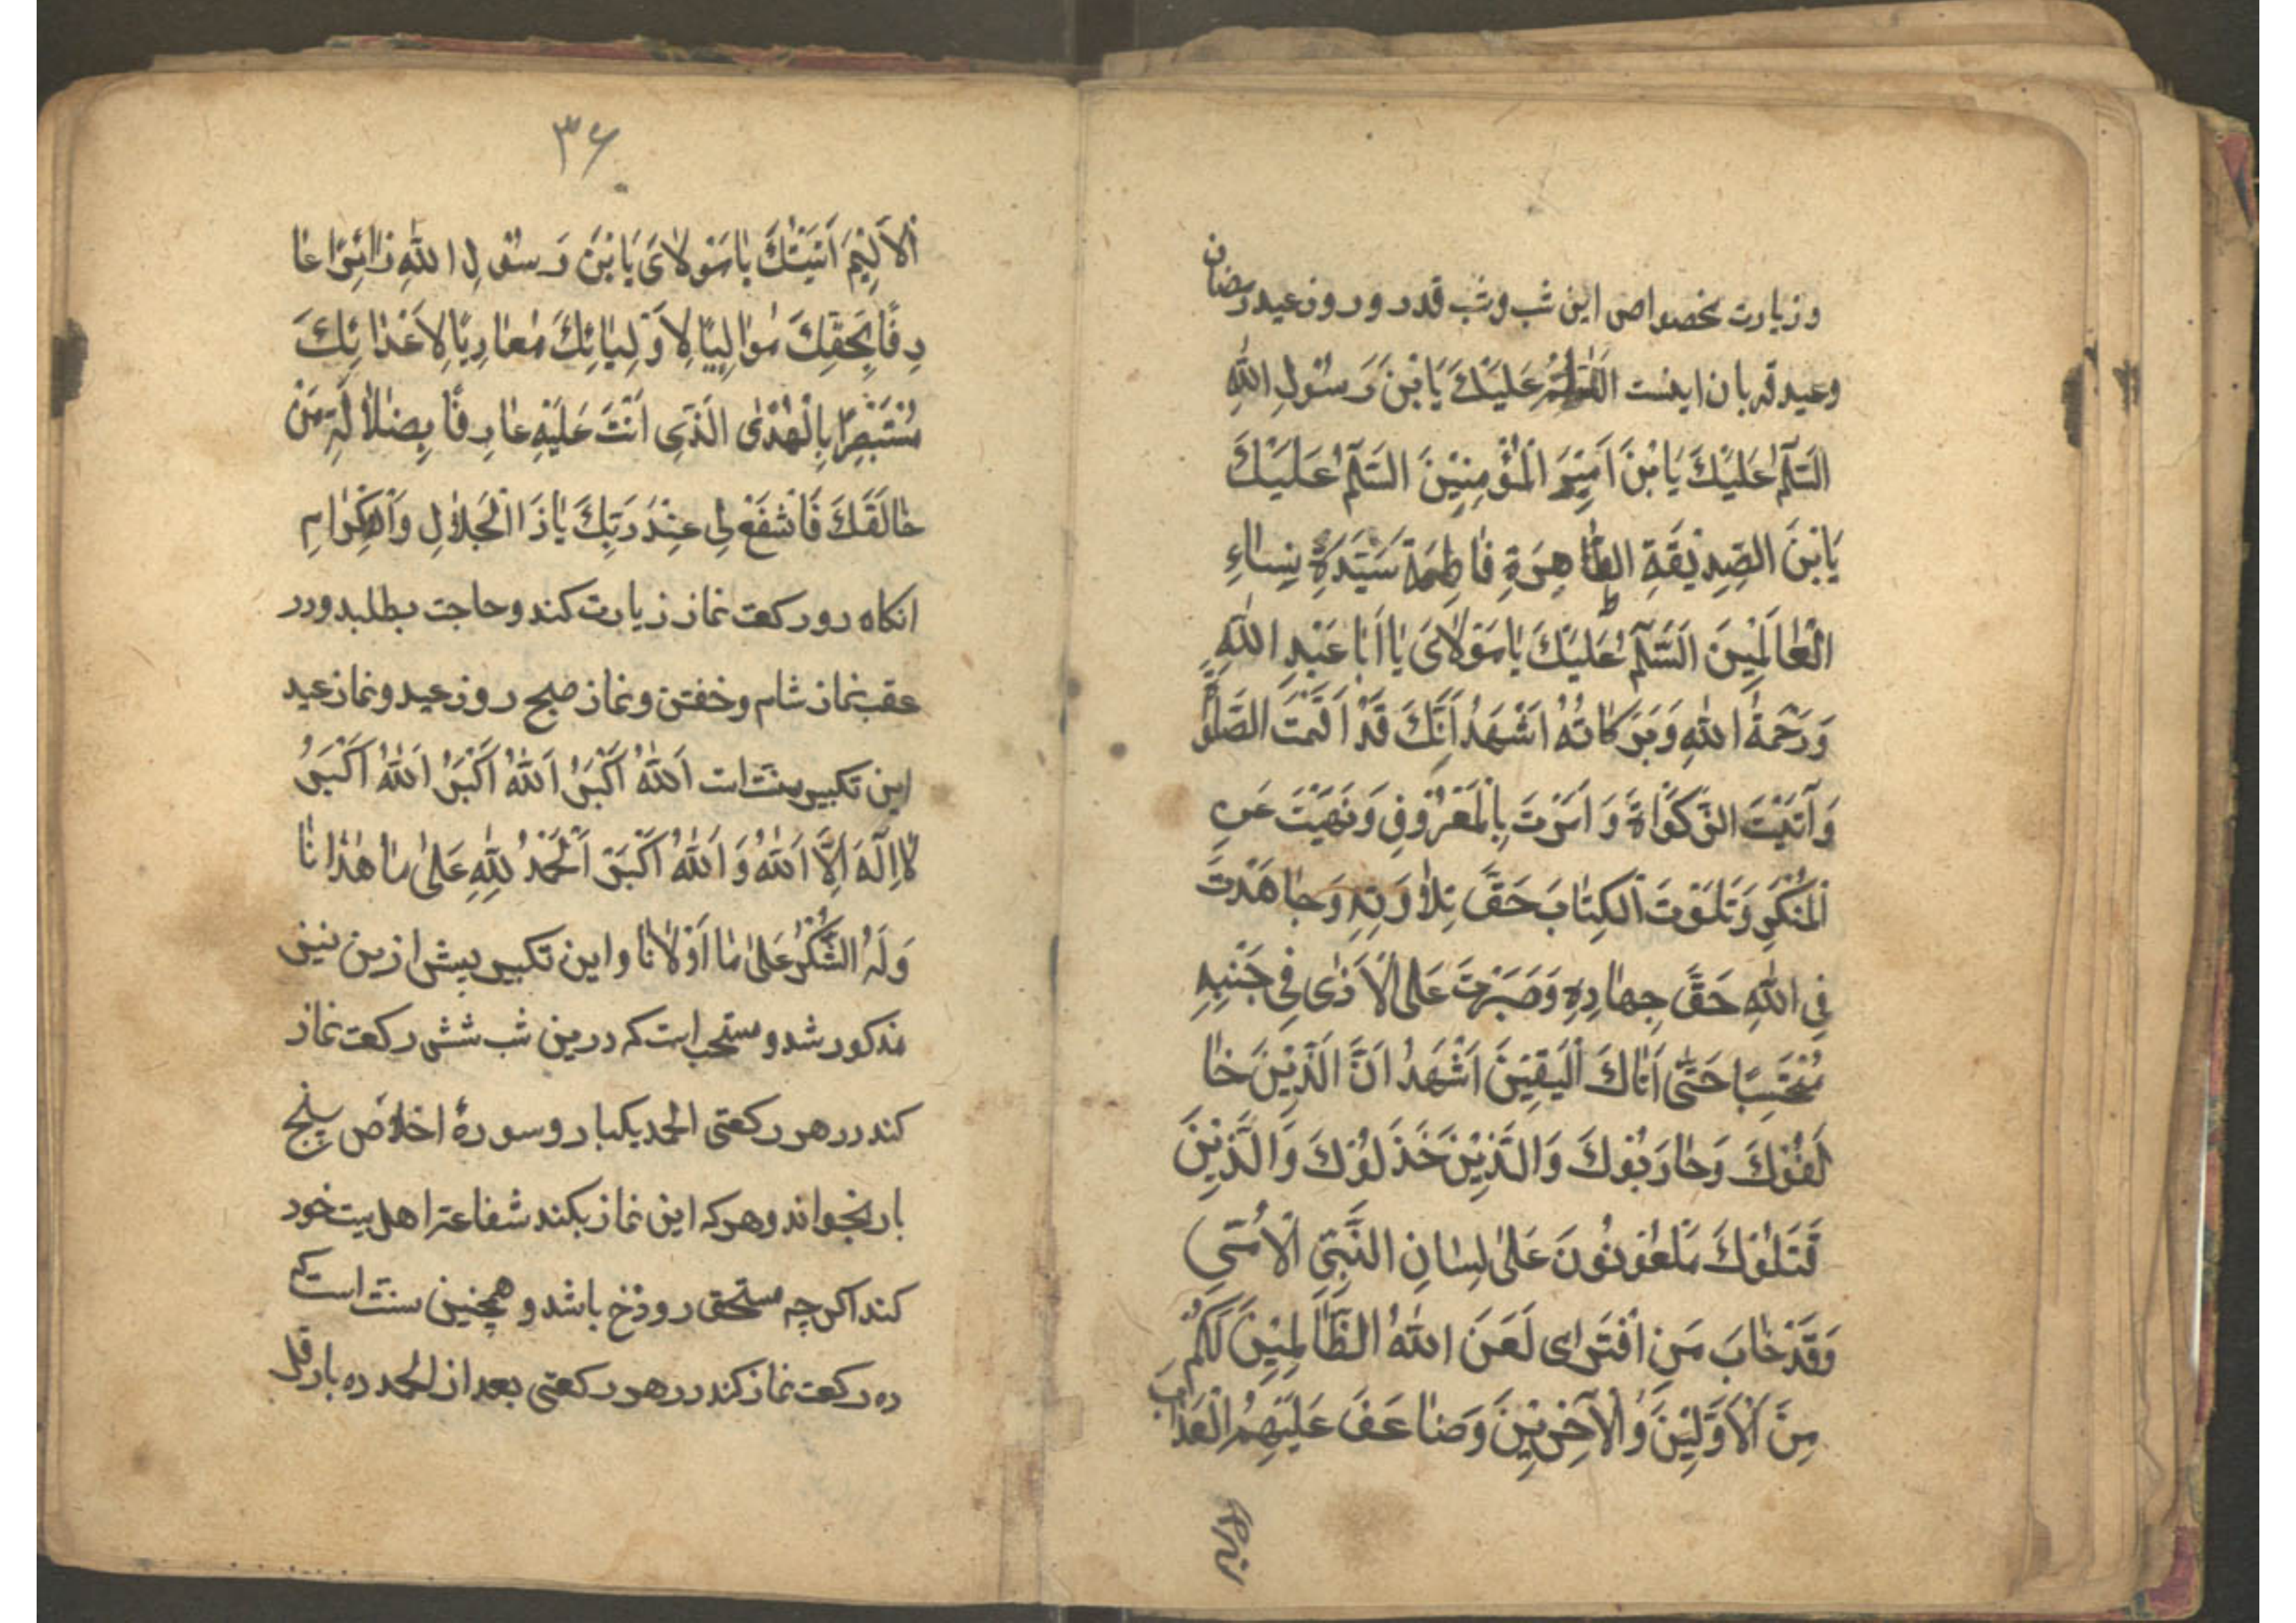 و زیارت مخصوص این شب و شب قدر و روز عید رمضان
و عید قربان اینست اَلسَّلٰمُ عَلَیْكَ یَا بْنَ رَسُوْلِ اللّٰهِ
اَلسَّلٰمُ عَلَیْكَ یَا بْنَ اَمِیْرَ الْمُؤْمِنِیْنَ السَّلٰمُ عَلَیْكَ
یَا بْنَ الصِّدِیْقَةِ الطّٰاهِرَةِ فٰاطِمَةَ سَیَّدَةِ نِسٰاءِ
الْعٰالَمِیْنَ اَلسَّلٰمُ عَلَیْكَ یٰا مَوْلٰایَ یٰا اَبٰا عَبْدِ اللّٰهِ
وَ رَحْمَةُ اللّٰهِ وَ بَرَكٰاتُهُ اَشْهَدُ اَنَّكَ قَدْ اَقَمْتَ الصَّلٰوةَ
وَ آتَیْتَ الزَّكَوٰاةَ وَ اَمَرْتَ بِالْمَعْرُوْفِ وَ نَهَیْتَ عَنِ
الْمُنْكَرِ وَ تَلَوْتَ الْكِتٰابَ حَقَّ تِلٰاوَتِهِ وَ جٰاهَدْتَ
فِی اللّٰهِ حَقَّ جِهٰادِهِ وَ صَبَرْتَ عَلَی الْاَذٰی فِی جَنْبِهِ
مُحْتَسِبًا حَتّٰی اَتٰاكَ الْیَقِیْنَ اَشْهَدُ اَنَّ الَّذِیْنَ خٰا
لَفُوْكَ وَ حٰارَبُوْكَ وَ الَّذِیْنَ خَذَلُوْكَ وَ الَّذِیْنَ
قَتَلُوْكَ مَلْعُوْنُوْنَ عَلیٰ لِسٰانِ النَّبِیِّ الْاُمِّیِّ
وَ قَدْ خٰابَ مَنِ افْتَرٰای لَعَنَ اللّٰهُ الظّٰالِمِیْنَ لَكُمْ
مِنَ الْاَوَّلِیْنَ وَ الْآخِرِیْنَ وَ ضٰاعَفَ عَلَیْهِمُ الْعَذٰابَ
٣۶
اَلْاَلِیْمَ اَتَیْتُكَ یٰا مَوْلٰایَ یَا بْنَ رَسُوْلِ اللّٰهِ زٰائِرًا عٰا
رِفًا بِحَقِّكَ مُوٰالِیًا لِاَوْلِیٰائِكَ مُعٰادِیًا لِاَعْدٰائِكَ
مُسْتَبْصِرًا بِالْهُدٰی الَّذِی اَنْتَ عَلَیْهِ عٰارِفًا بِضَلٰالَةِ مَنْ
خٰالَفَكَ فَاشْفَعْ لِی عِنْدَ رَبِّكَ یٰا ذَا الْجَلٰالِ وَ الْاِكْرٰامِ
انكاه دو ركعت نماز زیارت كند و حاجت بطلبد و در
عقب نماز شام و خفتن و نماز صبح روز عید و نماز عید
این تكبیر سنّت است اَللّٰهُ اَكْبَرُ اَللّٰهُ اَكْبَرُ اَللّٰهُ اَكْبَرُ
لٰا اِلٰهَ اِلَّا اللّٰهُ وَ اَللّٰهُ اَكْبَرُ اَلْحَمْدُ لِلّٰهِ عَلیٰ مٰا هَدٰانٰا
وَ لَهُ الشُّكْرُ عَلیٰ مٰا اَوْلٰانٰا و این تكبیر پیش ازین نیز
مذكور شد و مستحب است كه درین شب شش ركعت نماز
كند در هر ركعتی الحمد یكبار و سورهٔ اخلاص پنج
بار بخواند و هر كه این نماز بكند شفاعت اهل بیت خود
كند اكر چه مستحق دوزخ باشد و همچنین سنّت است كه
ده ركعت نماز كند در هر ركعتی بعد از الحمد ده بار قل